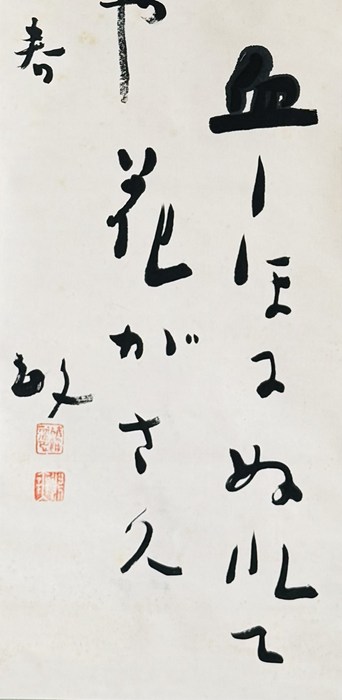 血しほにぬれて
や花がさ久
春
敏